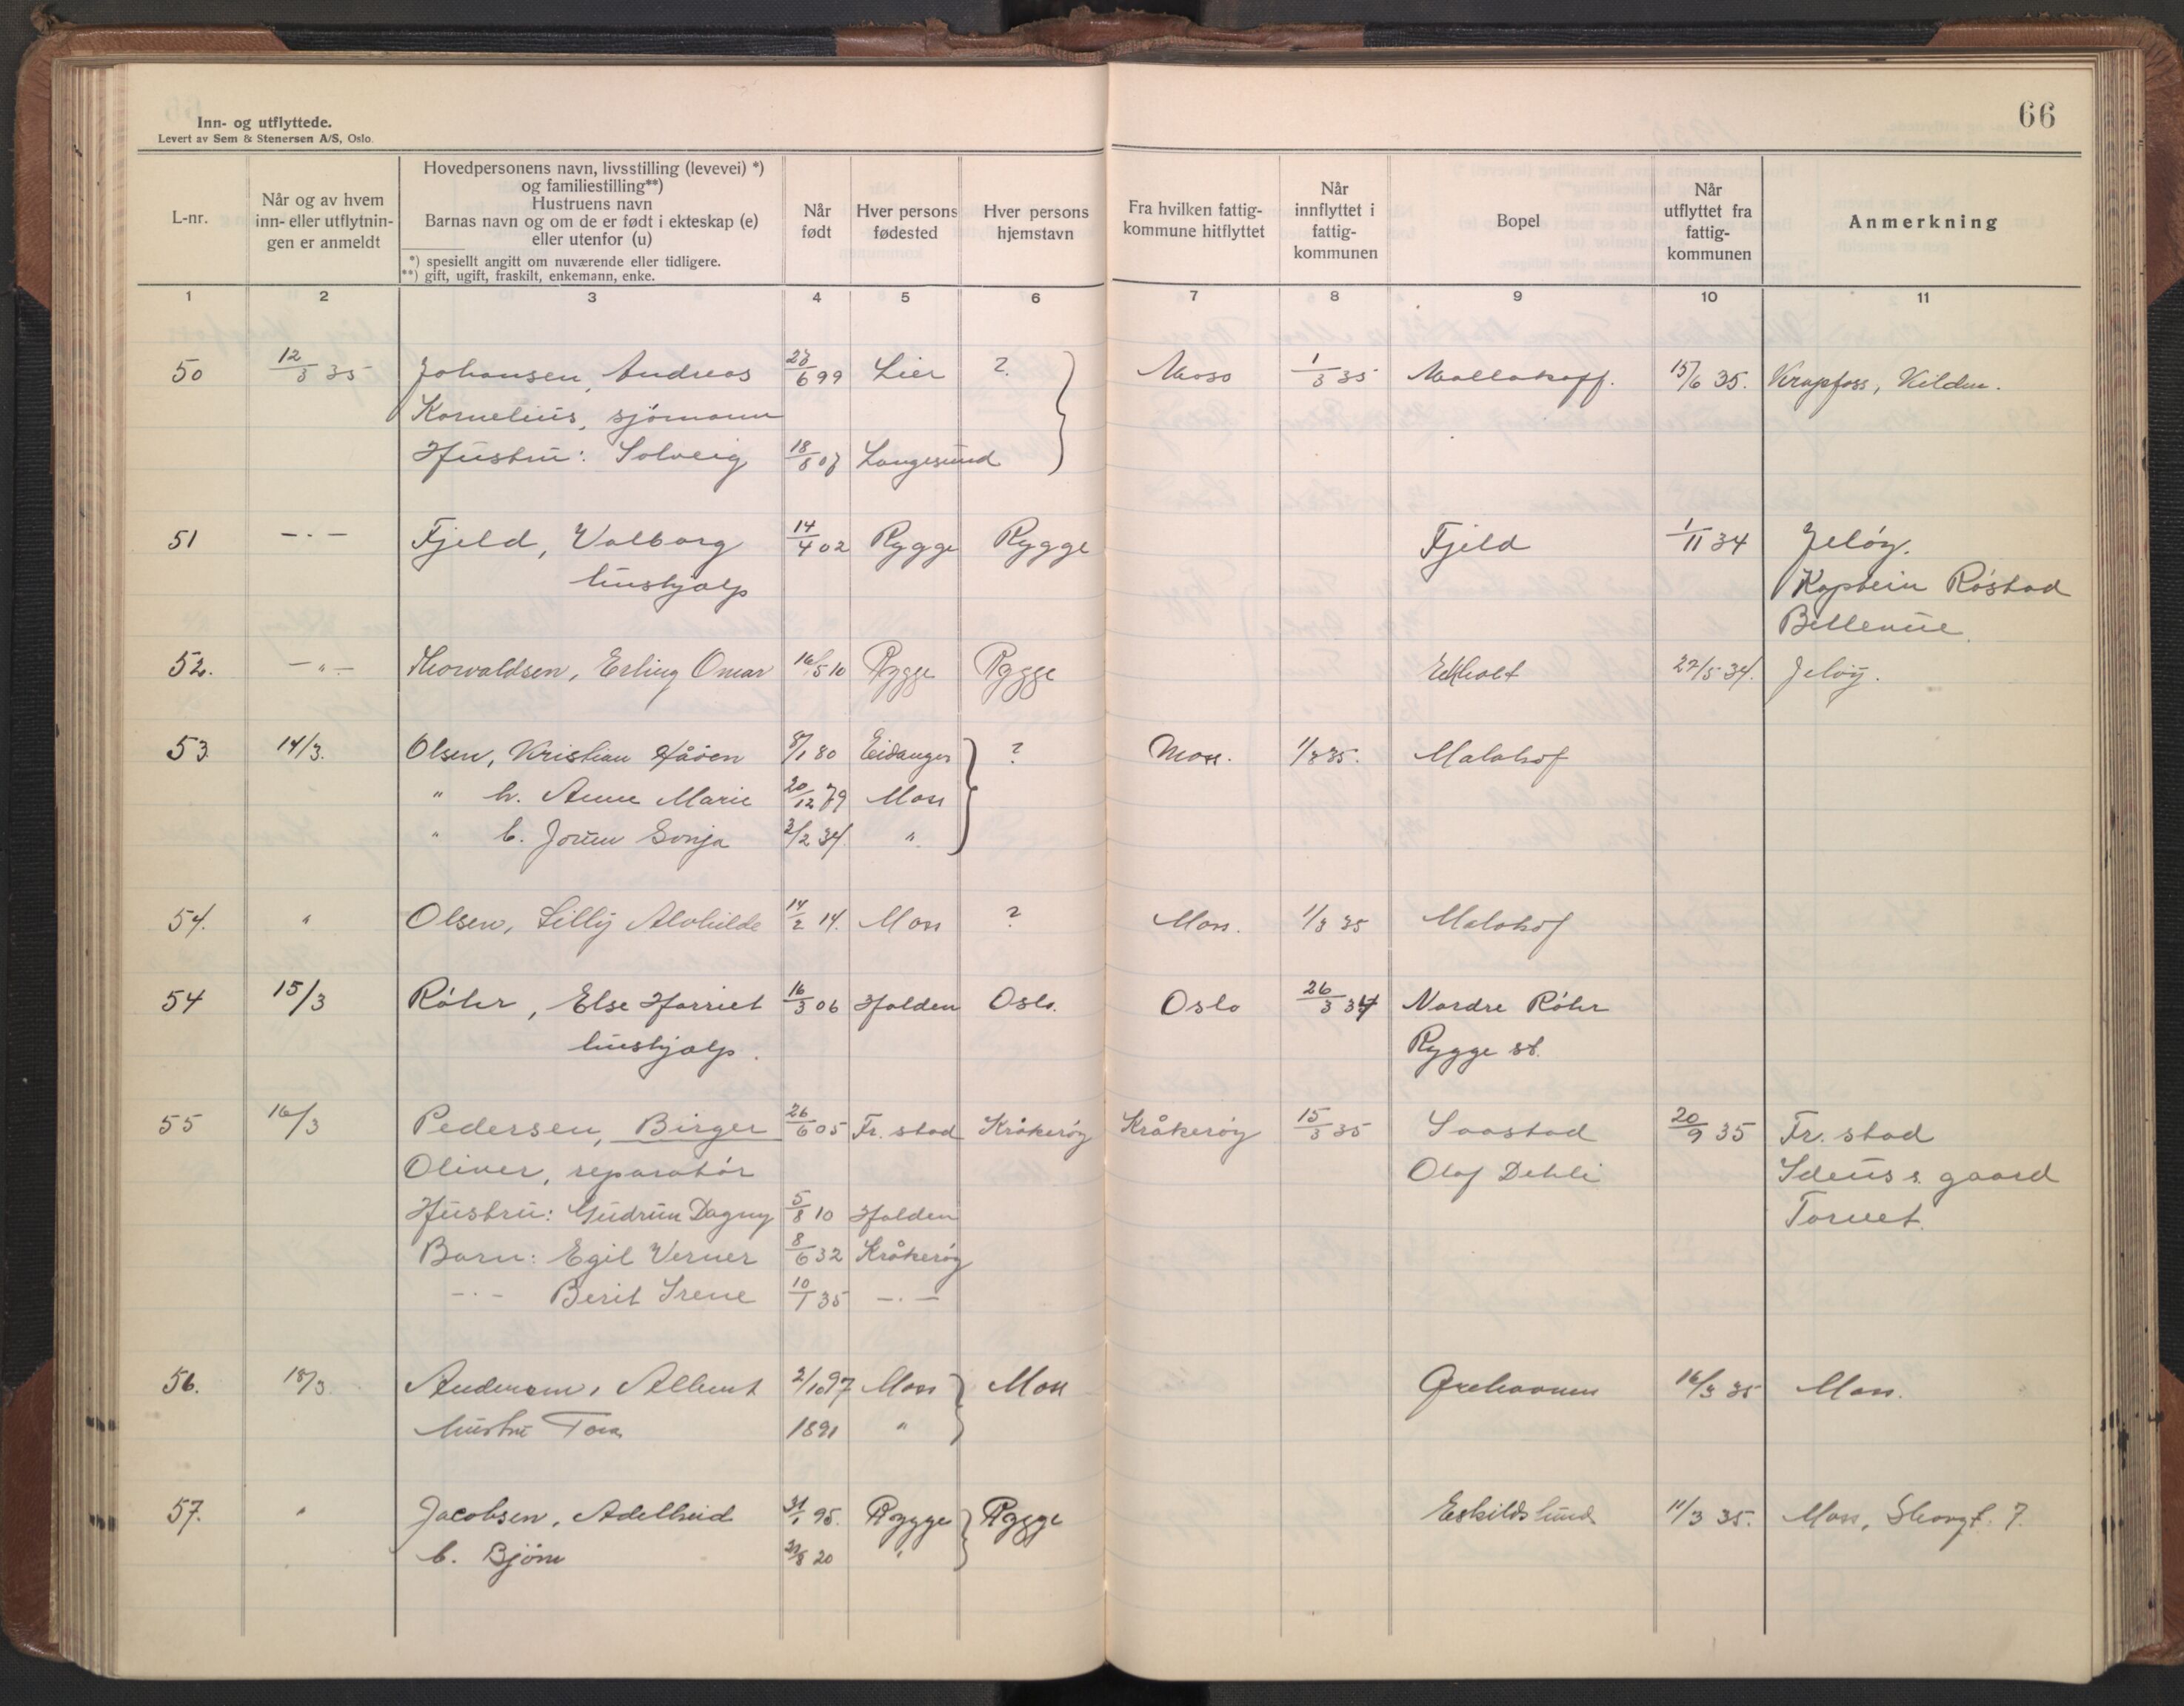 66
Inn- og utflyttede.
Levert av Sem & Stenersen A/S, Oslo.
L-nr.
Når og av hvem
inn- eller utflytnin-
gen er anmeldt
Hovedpersonens navn, livsstilling (levevei) *)
og familiestilling**)
Hustruens navn
Barnas navn og om de er født i ekteskap (e)
eller utenfor (u)
*) spesielt angitt om nuværende eller tidligere.
**) gift, ugift, fraskilt, enkemann, enke.
Når
født
Hver persons
fødested
Hver persons
hjemstavn
Fra hvilken fattig-
kommune hitflyttet
Når
innflyttet i
fattig-
kommunen
Bopel
Når
utflyttet fra
fattig-
kommunen
Anmerkning
1 2 3 4 5 6 7 8 9 10 11
50 12/3 35 Johansen, Andreas 6 99 Lier ? Moss 1/3 35 Mallakoff. 15/6 35. Krapfoss, Kilden.
Kornelius, sjömann
Hustru: Solveig 18/8 07 Langesund
51 -·- Fjeld, Valborg 14/4 02 Rygge Rygge Fjeld 1/11 34 Jeløy.
hushjælp Kaptein Röstad
Bellevue.
52. -"- Thorvaldsen, Erling Omar 16/5 10 Rygge Rygge Ekholt 22/5 34. Jeløy.
53. 14/3. Olsen, Kristian Håøen 8/1 80 Eidanger ? Moss. 1/3 35. Malakof
" h. Anne Marie 20/12 79 Moss
" b. Jorun Sonja 3/2 34. "
54. " Olsen, Lilly Alvhilde 14/2 14. Moss ? Moss. 1/3 35 Malakof
54 15/3 Röhr, Else Harriet 16/3 06 Halden Oslo. Oslo 26/3 34 Nordre Röhr
hushjælp. Rygge st.
55 16/3 Pedersen, Birger 26/6 05 Fr. stad Kråkerøy Kråkerøy 15/3 35 Saastad 20/9 35 Fr. stad
Oliver, reparatör Olaf Dehli gaard
Hustru: Gudrun Dagny 5/8 10 Halden Torvet.
Barn: Egil Verner 8/6 32 Kråkerøy
-·- Berit Irene 10/1 35 -·-
56. 18/3. Andersen, Albert 2/10 97 Moss Moss Ørehavnen 16/3 35 Moss.
hustru Tora 1891 "
57. " Jacobsen, Adelheid 31/1 95. Rygge Rygge Eskildslund 11/3 35. Moss, Skovgt. 7.
b. Bjørn 8 20 "